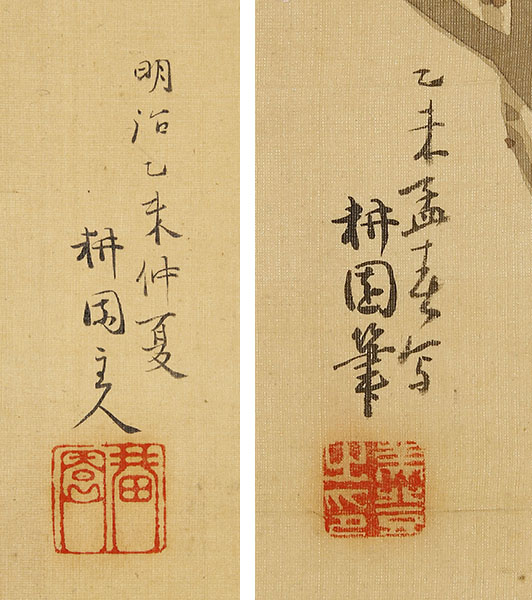 明治乙未仲夏
耕園主人
乙未孟春写
耕園筆